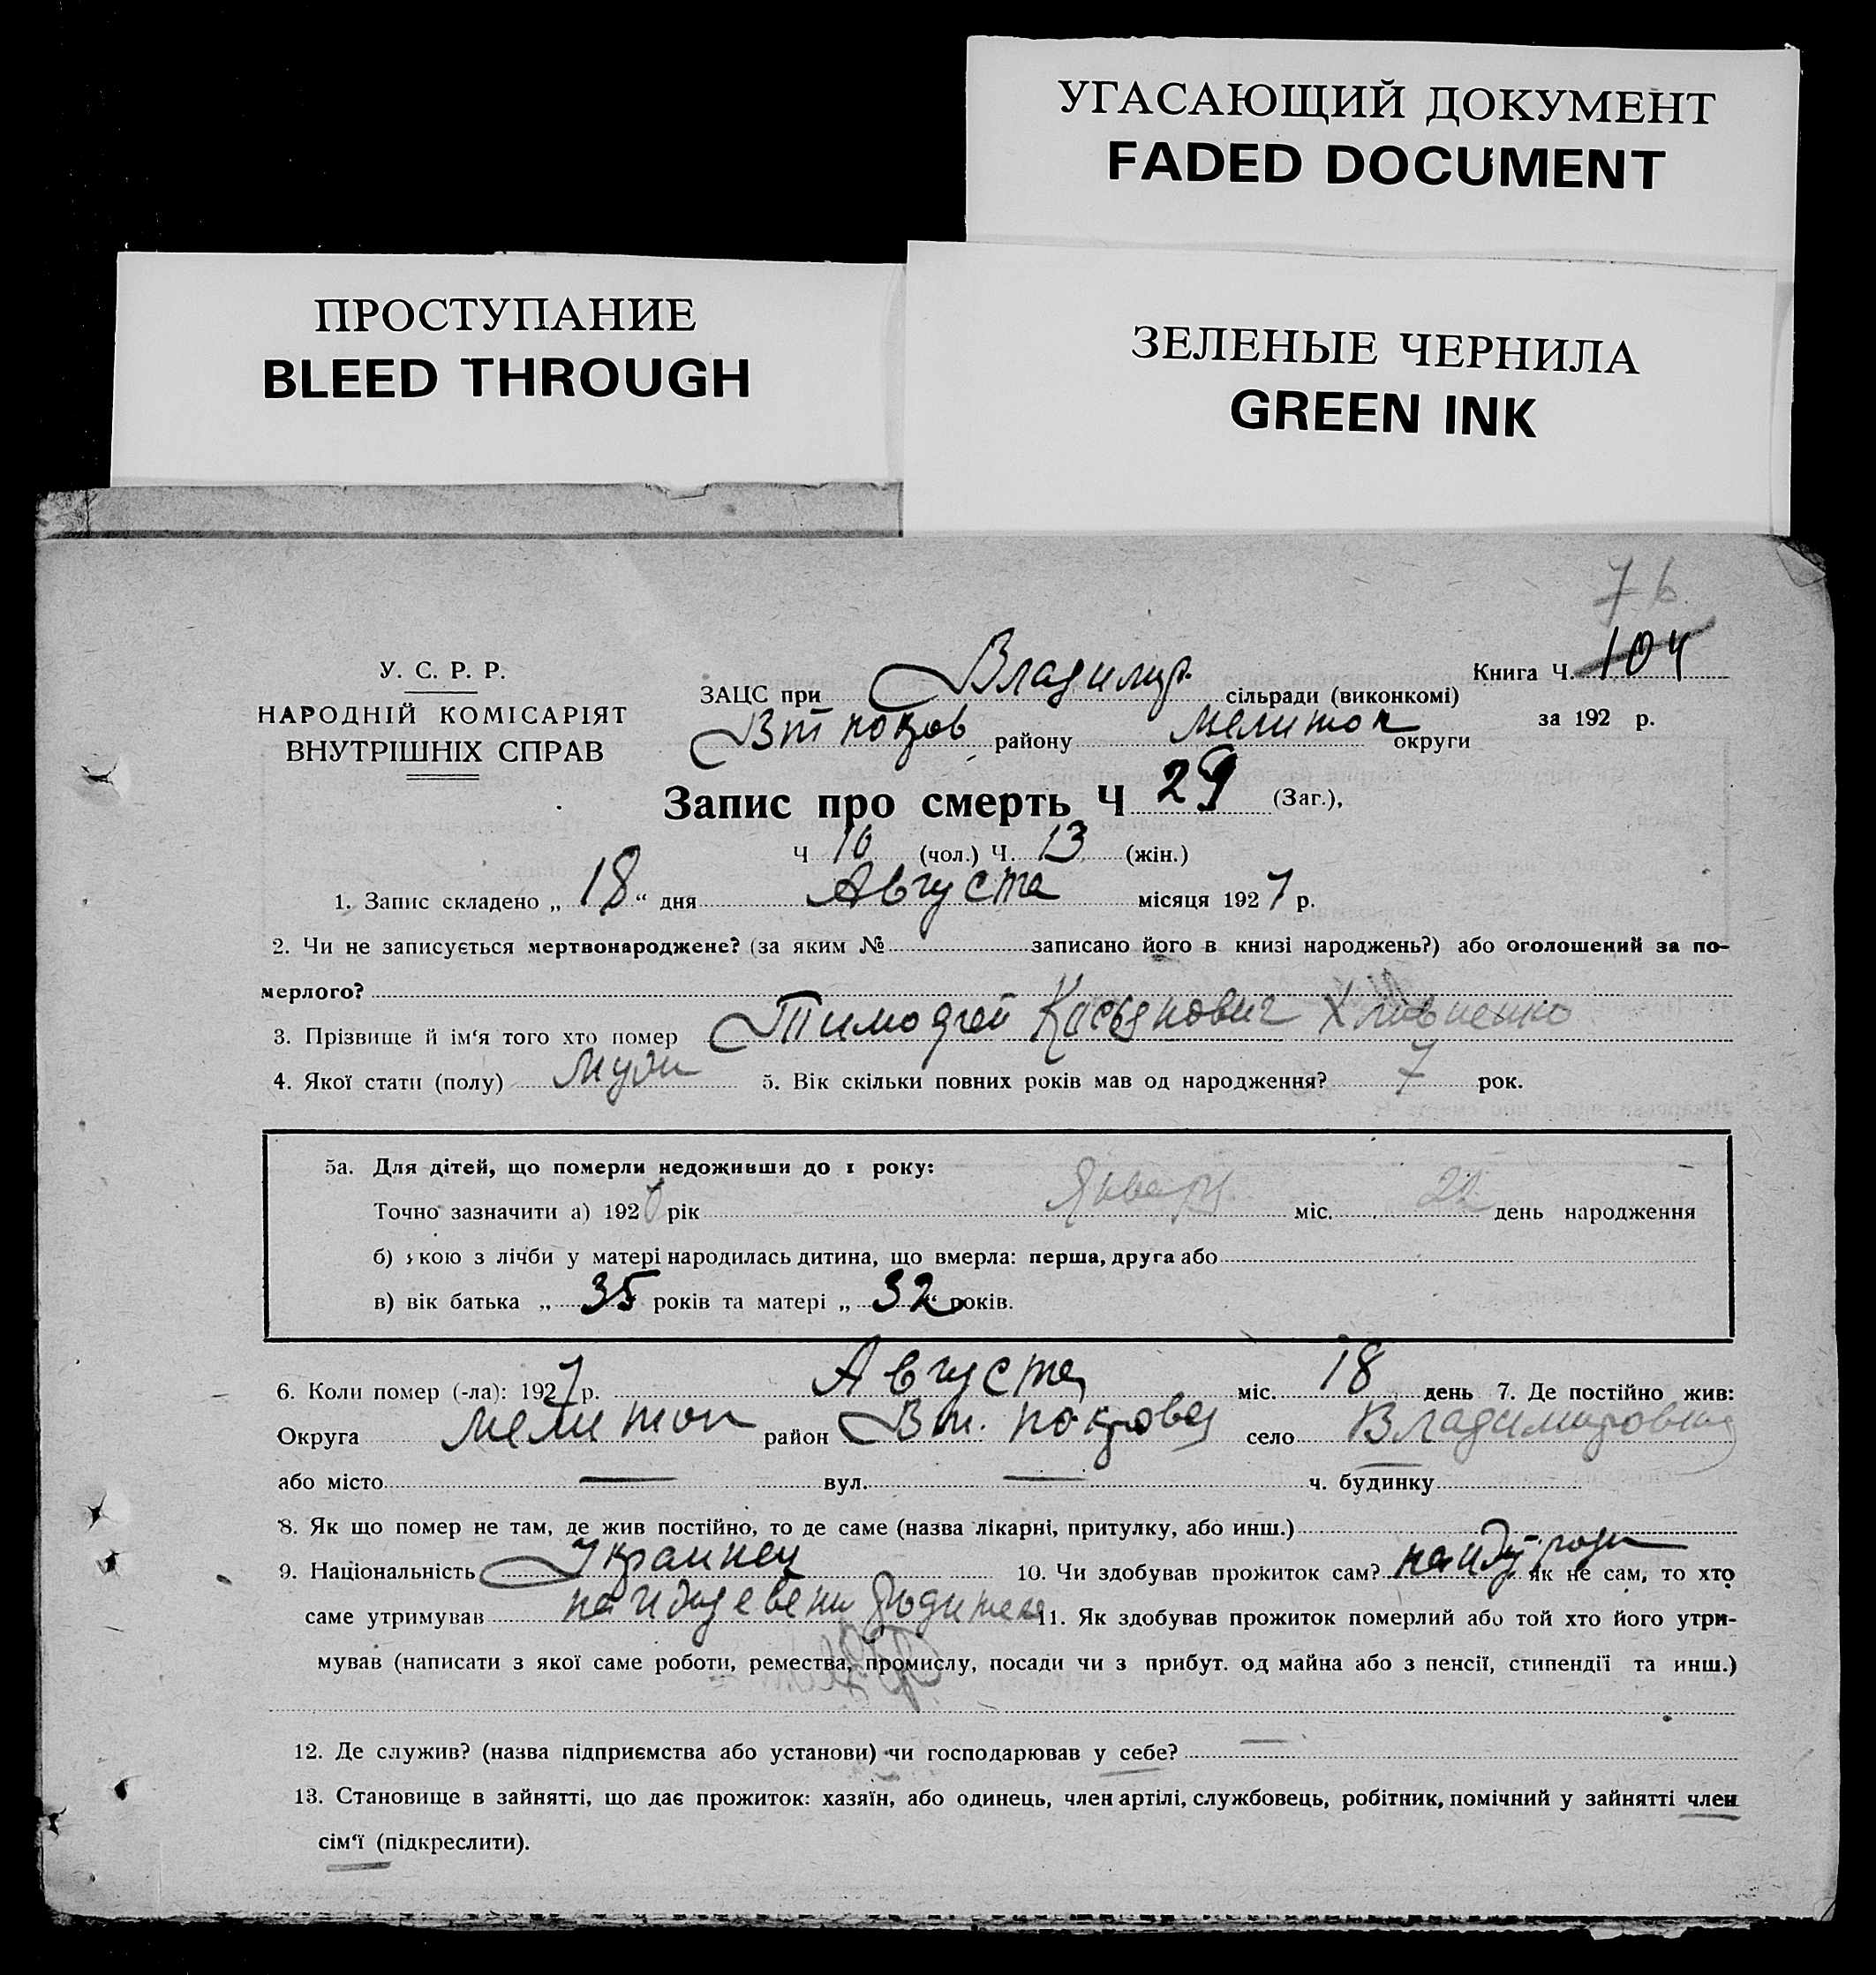 УГАСАЮЩИЙ ДОКУМЕНТ
FADED DOCUMENT
ПРОСТУПАНИЕ
BLEED THROUGH
ЗЕЛЕНЫЕ ЧЕРНИЛА
GREEN INK
76
У. С. Р. Р.
НАРОДНІЙ КОМІСАРІЯТ
ВНУТРІШНІХ СПРАВ
ЗАЦС при Владимир. сільради (виконкомі)
Книга Ч. 104
Вт покров району мелитоп округи
за 192 р.
Запис про смерть Ч 29 (Заг.),
Ч 16 (чол.) Ч. 13 (жін.)
1. Запис складено „ 18 “ дня Августа місяця 1927 р.
2. Чи не записується мертвонароджене? (за яким № записано його в книзі народжень?) або оголошений за по-
мерлого?
3. Прізвище й ім‘я того хто помер Тимофей Касьянович
4. Якої стати (полу) Муж 5. Вік скільки повних років мав од народження? 7 рок.
5а. Для дітей, що померли недоживши до 1 року:
Точно зазначити а) 192 рік Января міс. 22 день народження
б) кою з лічби у матері народилась дитина, що вмерла: перша, друга або
в) вік батька „ 35 років та матері „ 32 “ років.
6. Коли помер (-ла): 1927 р. Августа міс. 18 день 7. Де постійно жив:
Округа мелитоп район Вт. покров село Владимировка
або місто — вул. — ч. будинку
8. Як що помер не там, де жив постійно, то де саме (назва лікарні, притулку, або инш.)
9. Національність Украинец 10. Чи здобував прожиток сам? на ижд. род як не сам, то хто
саме утримував на иждевени Родителе 11. Як здобував прожиток померлий або той хто його утри-
мував (написати з якої саме роботи, ремества, промислу, посади чи з прибут. од майна або з пенсії, стипендії та инш.)
12. Де служив? (назва підприємства або установи) чи господарював у себе? —
13. Становище в зайнятті, що дає прожиток: хазяїн, або одинець, член артілі, службовець, робітник, помічний у зайнятті член
сім‘ї (підкреслити).